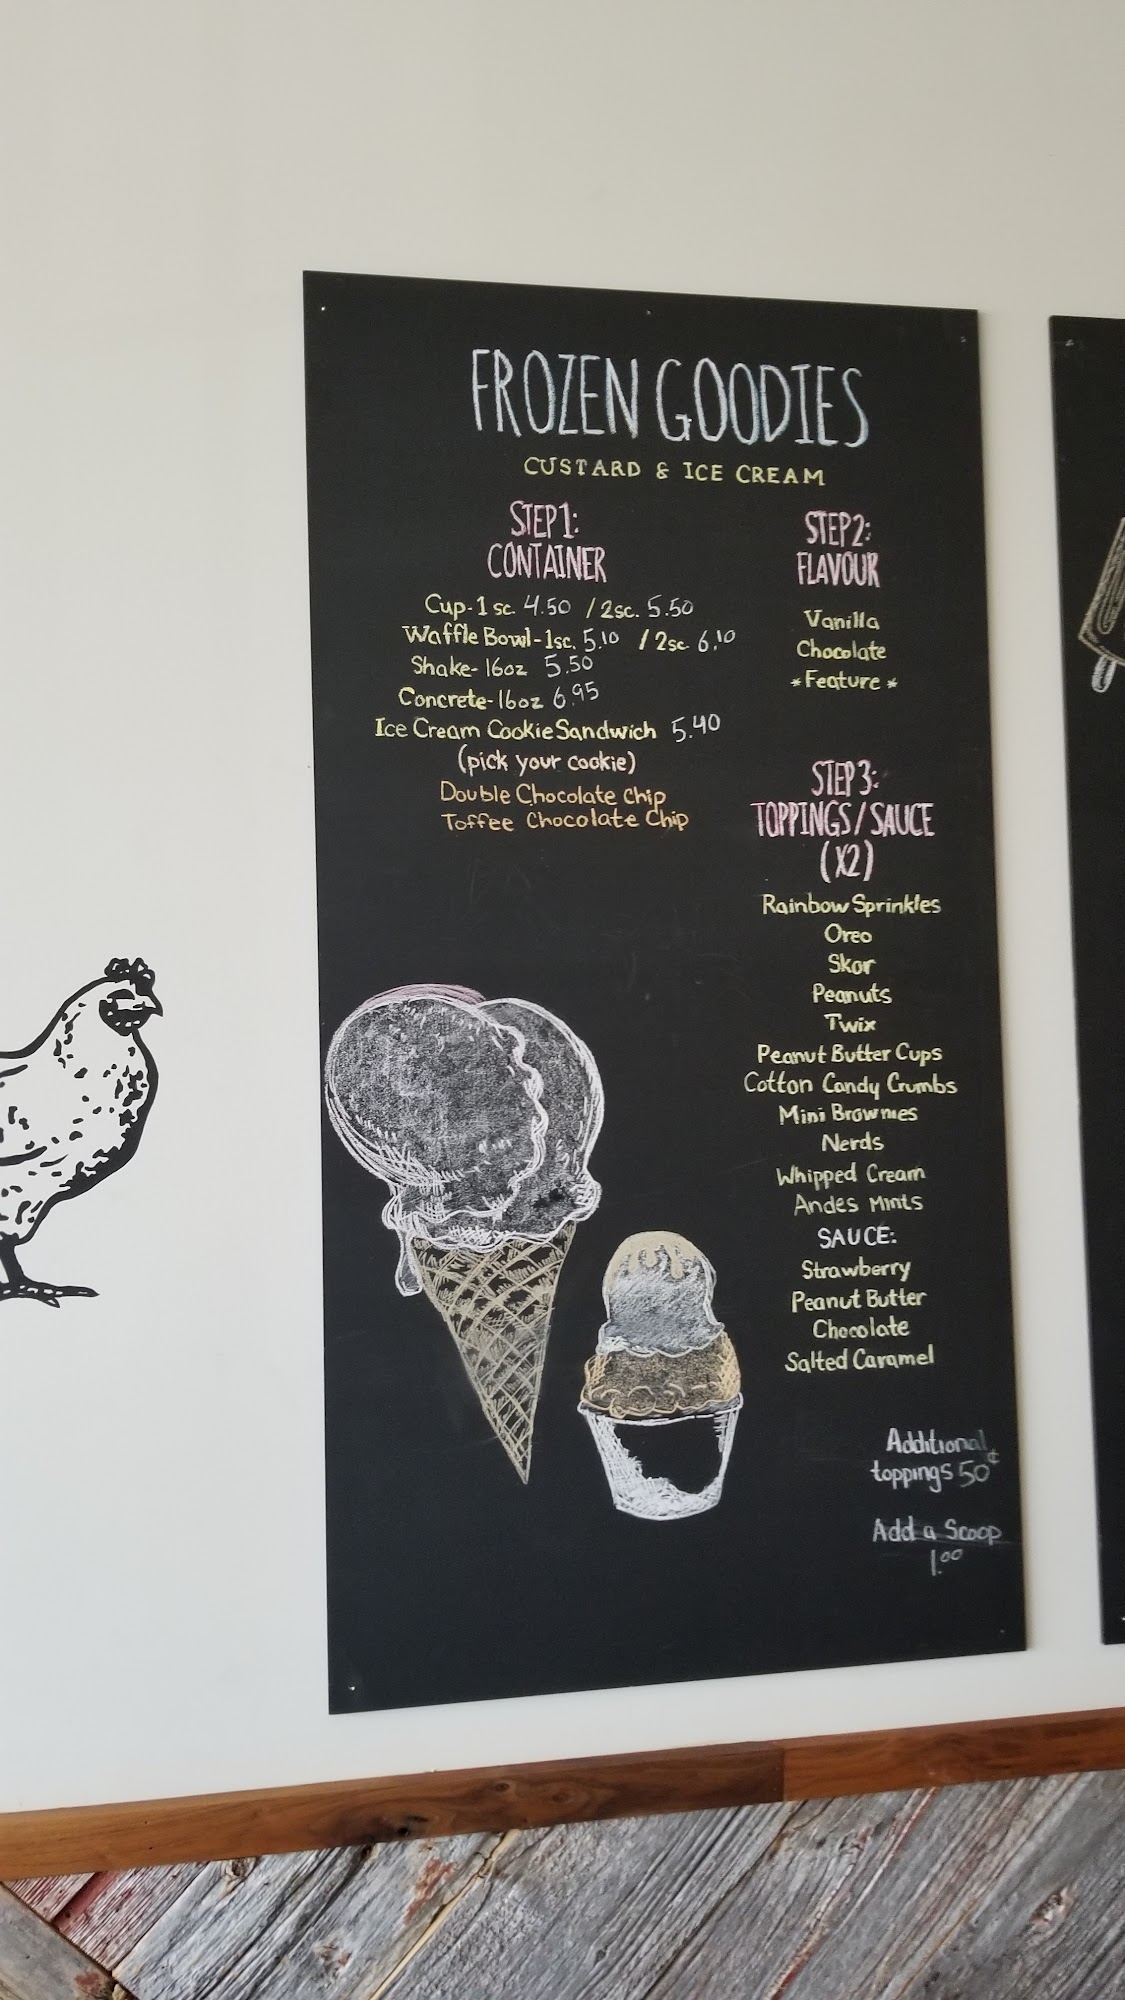 FROZEN GOODIES
CUSTARD & ICE CREAM
STEP 1:
CONTAINER
Cup-1 sc. 4.50 / 2sc. 5.50
Waffle Bowl-1sc. 5.10 / 2sc 6.10
Shake-16oz 5.50
Concrete-16oz 6.95
Ice Cream Cookie Sandwich 5.40
(pick your cookie)
Double Chocolate Chip
Toffee Chocolate Chip
STEP 2:
FLAVOUR
Vanilla
Chocolate
*Feature*
STEP 3:
TOPPINGS/SAUCE
(X2)
Rainbow Sprinkles
Oreo
Skor
Peanuts
Twix
Peanut Butter Cups
Cotton Candy Crumbs
Mini Brownies
Nerds
Whipped Cream
Andes Mints
SAUCE:
Strawberry
Peanut Butter
Chocolate
Salted Caramel
Additional
toppings 50¢
Add a Scoop
1.00